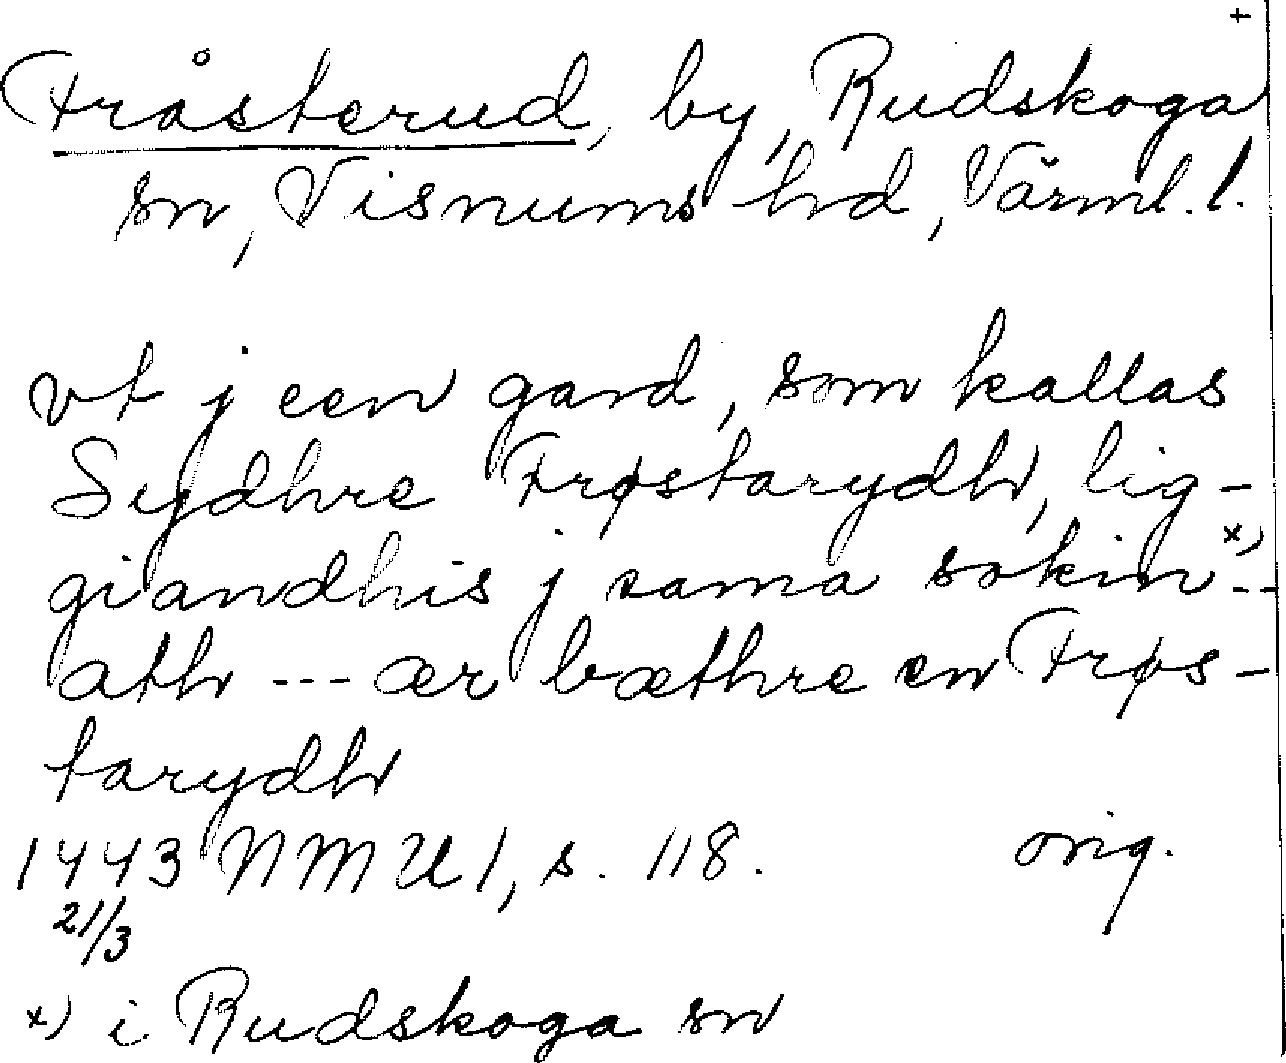 +
Fråsterud, by, Rudskoga
sn, Visnums hd, Värml. l.
vt j een gard, som kallas
Sydhre Frøstarydh, lig-
giandhis j sama sokin x) --
ath --- ær bæthre en Frøs-
tarydh
1443 NMU 1, s. 118. orig.
21/3
x) i Rudskoga sn